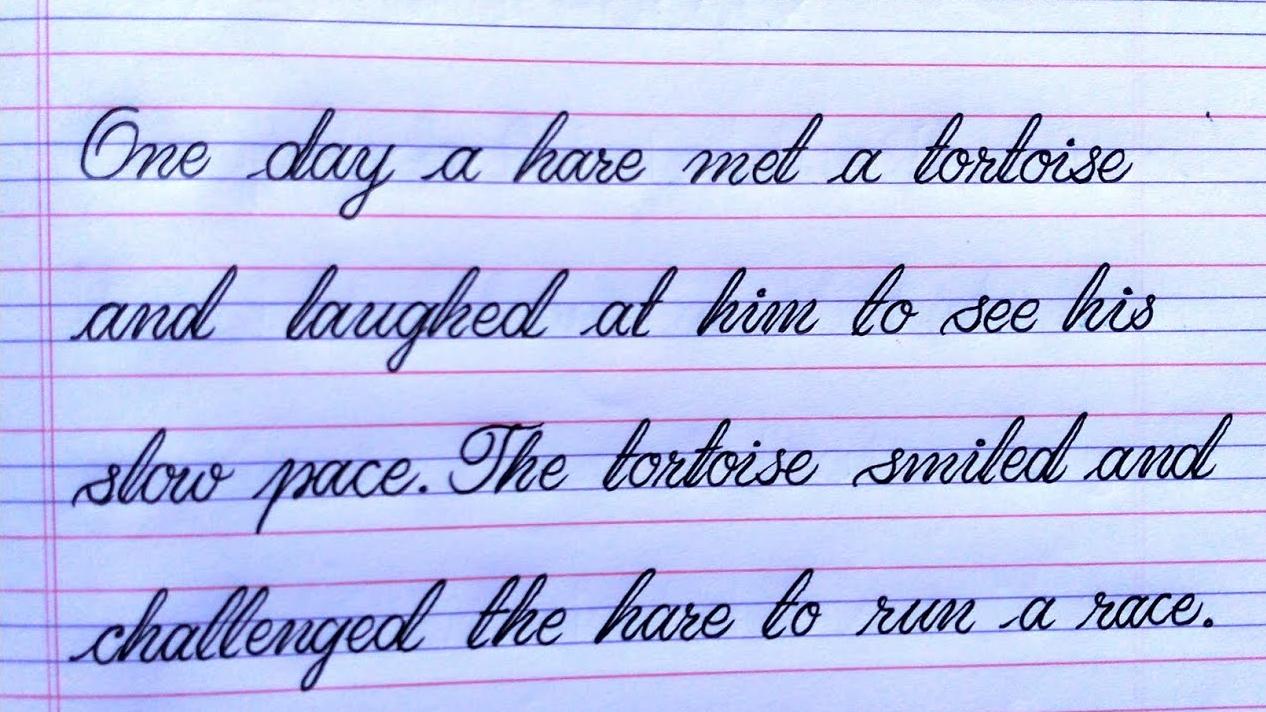 One day a hare met a tortoise
and laughed at him to see his
slow pace. The tortoise smiled and
challenged the hare to run a race.